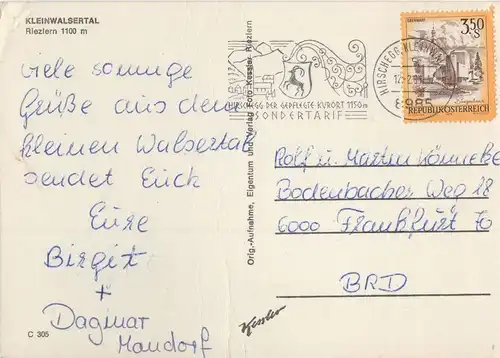 KLEINWALSERTAL
Riezlern 1100 m
viele sonnige
Grüße aus dem
kleinen Walsertal
sendet Euch
Eure
Birgit
+
Dagmar
Mandorf
C 305
Orig.-Aufnahme, Eigentum und Verlag Foto Kessler Riezlern
HIRSCHEGG DER GEPFLEGTE KURORT 1150 m
SONDERTARIF
HIRSCHEGG, KLEINWAL
8985
3.50 S
REPUBLIK ÖSTERREICH
Rolf u. Martin
Bodenbacher Weg 18
6000 Frankfurt
BRD
Kessler